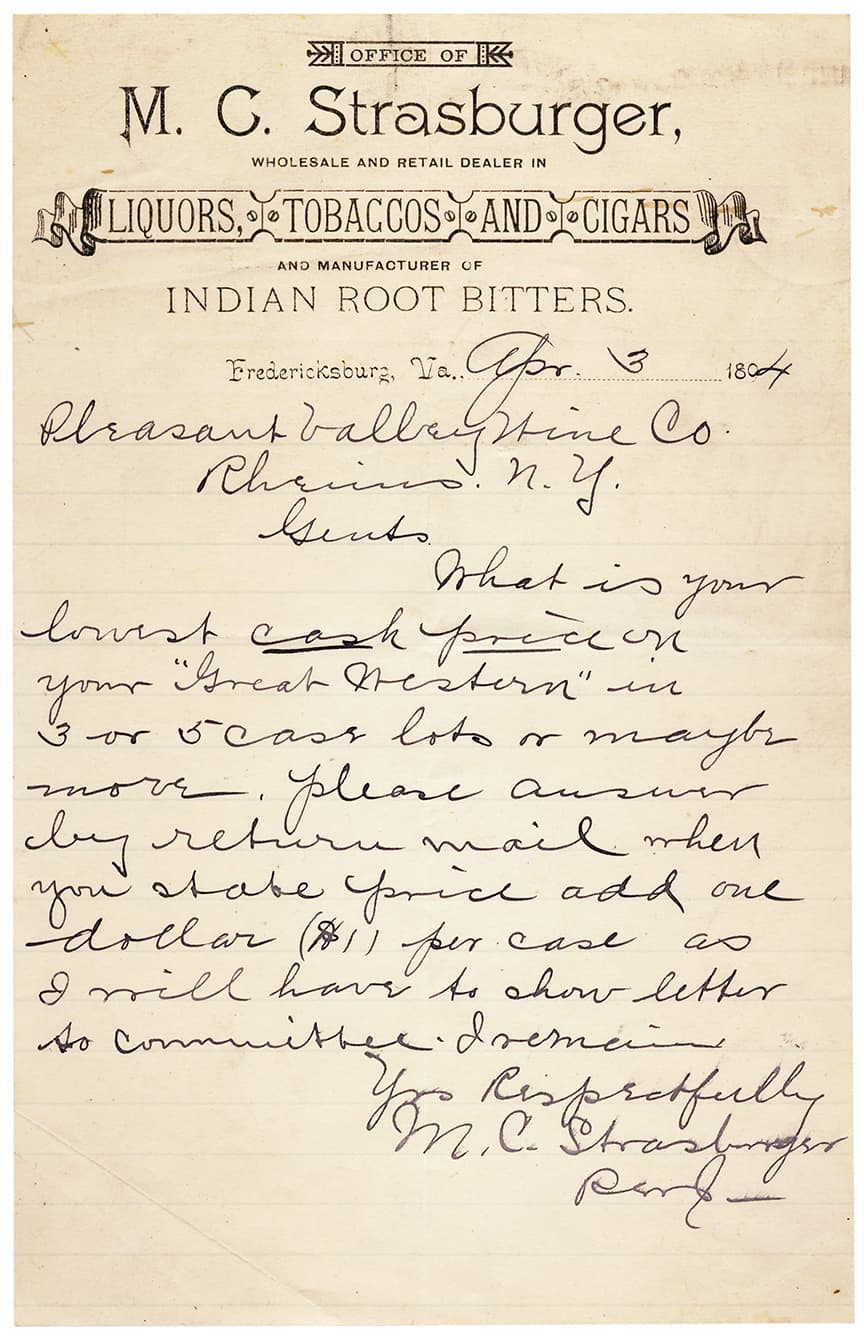 OFFICE OF
M. C. Strasburger,
WHOLESALE AND RETAIL DEALER IN
LIQUORS, TOBACCOS AND CIGARS
AND MANUFACTURER OF
INDIAN ROOT BITTERS.
Fredericksburg, Va., Apr. 3 1894
Pleasant Valley Wine Co.
Rheims. N. Y.
Gents
What is your
lowest cash price on
your "Great Western" in
3 or 5 case lots or maybe
more. please answer
by return mail when
you state price add one
dollar ($1) per case as
I will have to show letter
to committee. I remain
Yrs Respectfully
M. C. Strasburger
Per J